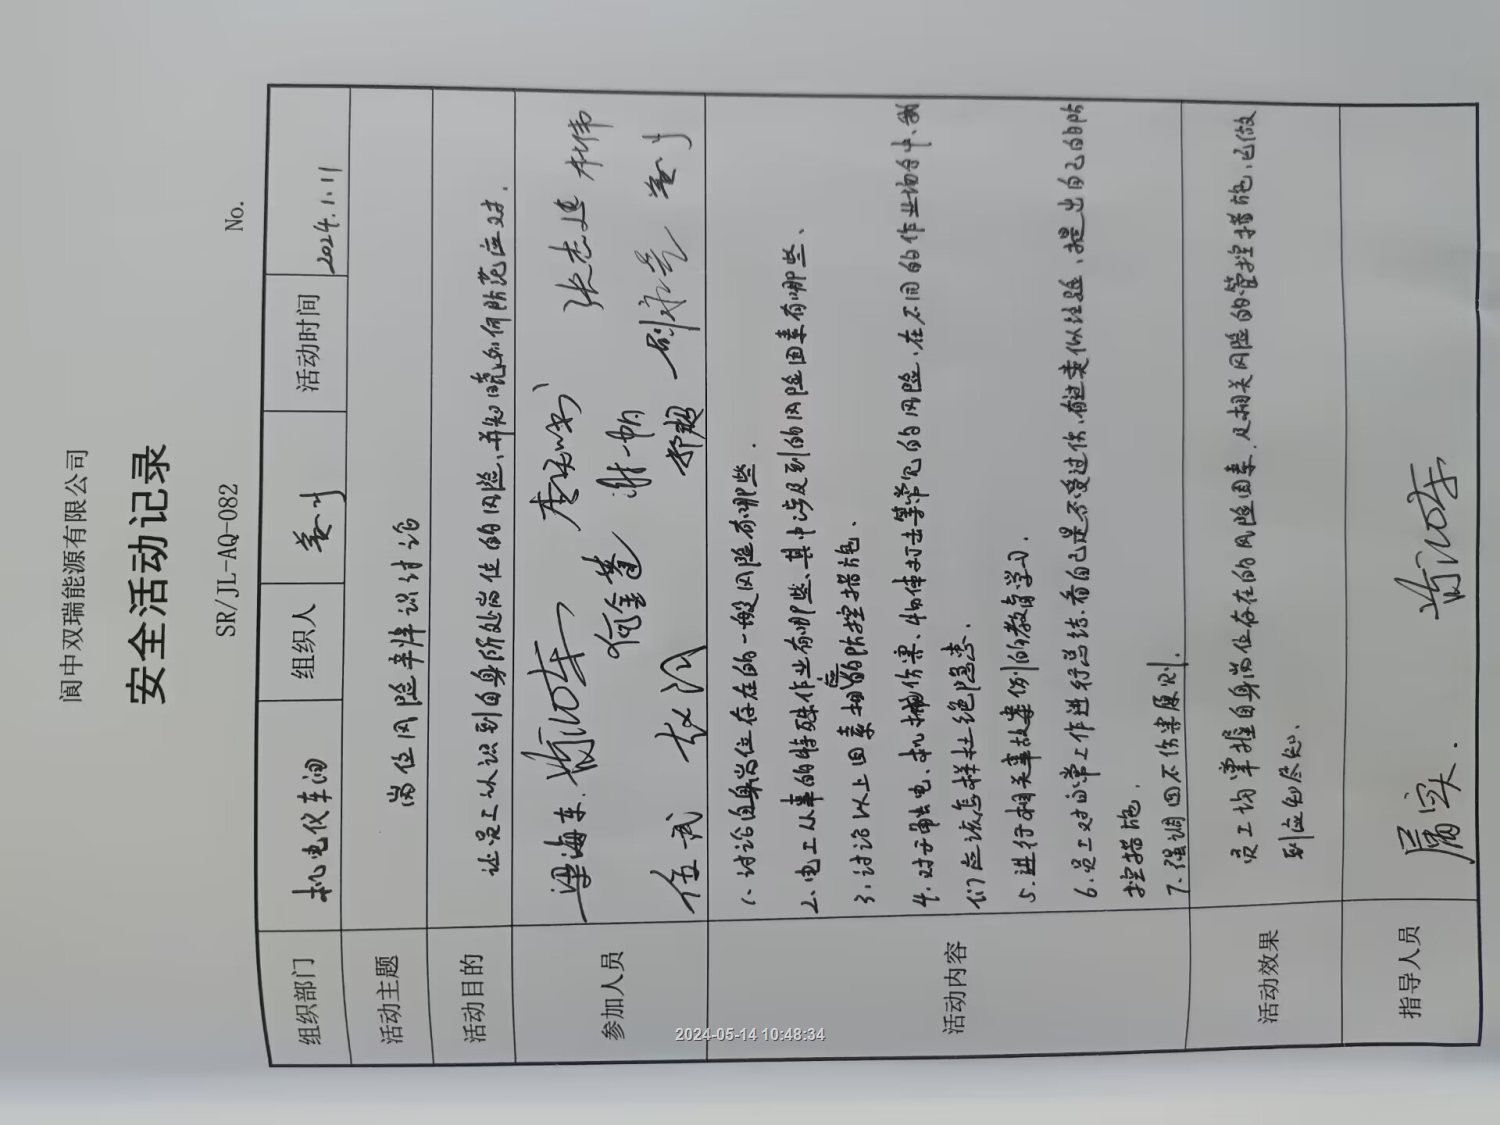 阆中双瑞能源有限公司
安全活动记录
SR/JL-AQ-082
No.
组织部门 机电仪车间 组织人 活动时间 2024.1.11
活动主题 岗位风险辛辨识讨论
活动目的 让员工认识到自身所处岗位的风险、并知晓如何防范应对.
参加人员 梁海东. 张志建 林伟
何金蓬 谢一帆
伍武 赵 舒超
活动内容
1、讨论自身岗位存在的一般风险有哪些.
2、电工从事的特殊作业有哪些、其中涉及到的风险因素有哪些、
3、讨论以上因素相应的防控措施.
4、对于触电、机械伤害、物体打击等常见的风险、在不同的作业场合中、我
们应该怎样杜绝隐患.
5、进行相关事故案例的教育学习.
6、员工对日常工作进行总结、看自己是不受过伤、有过类似经验、提出自己的防
控措施.
7、强调四不伤害原则.
活动效果 员工均掌握自身岗位存在的风险因素、及相关风险的管控措施、已做
到应知尽知.
指导人员
2024-05-14 10:48:34